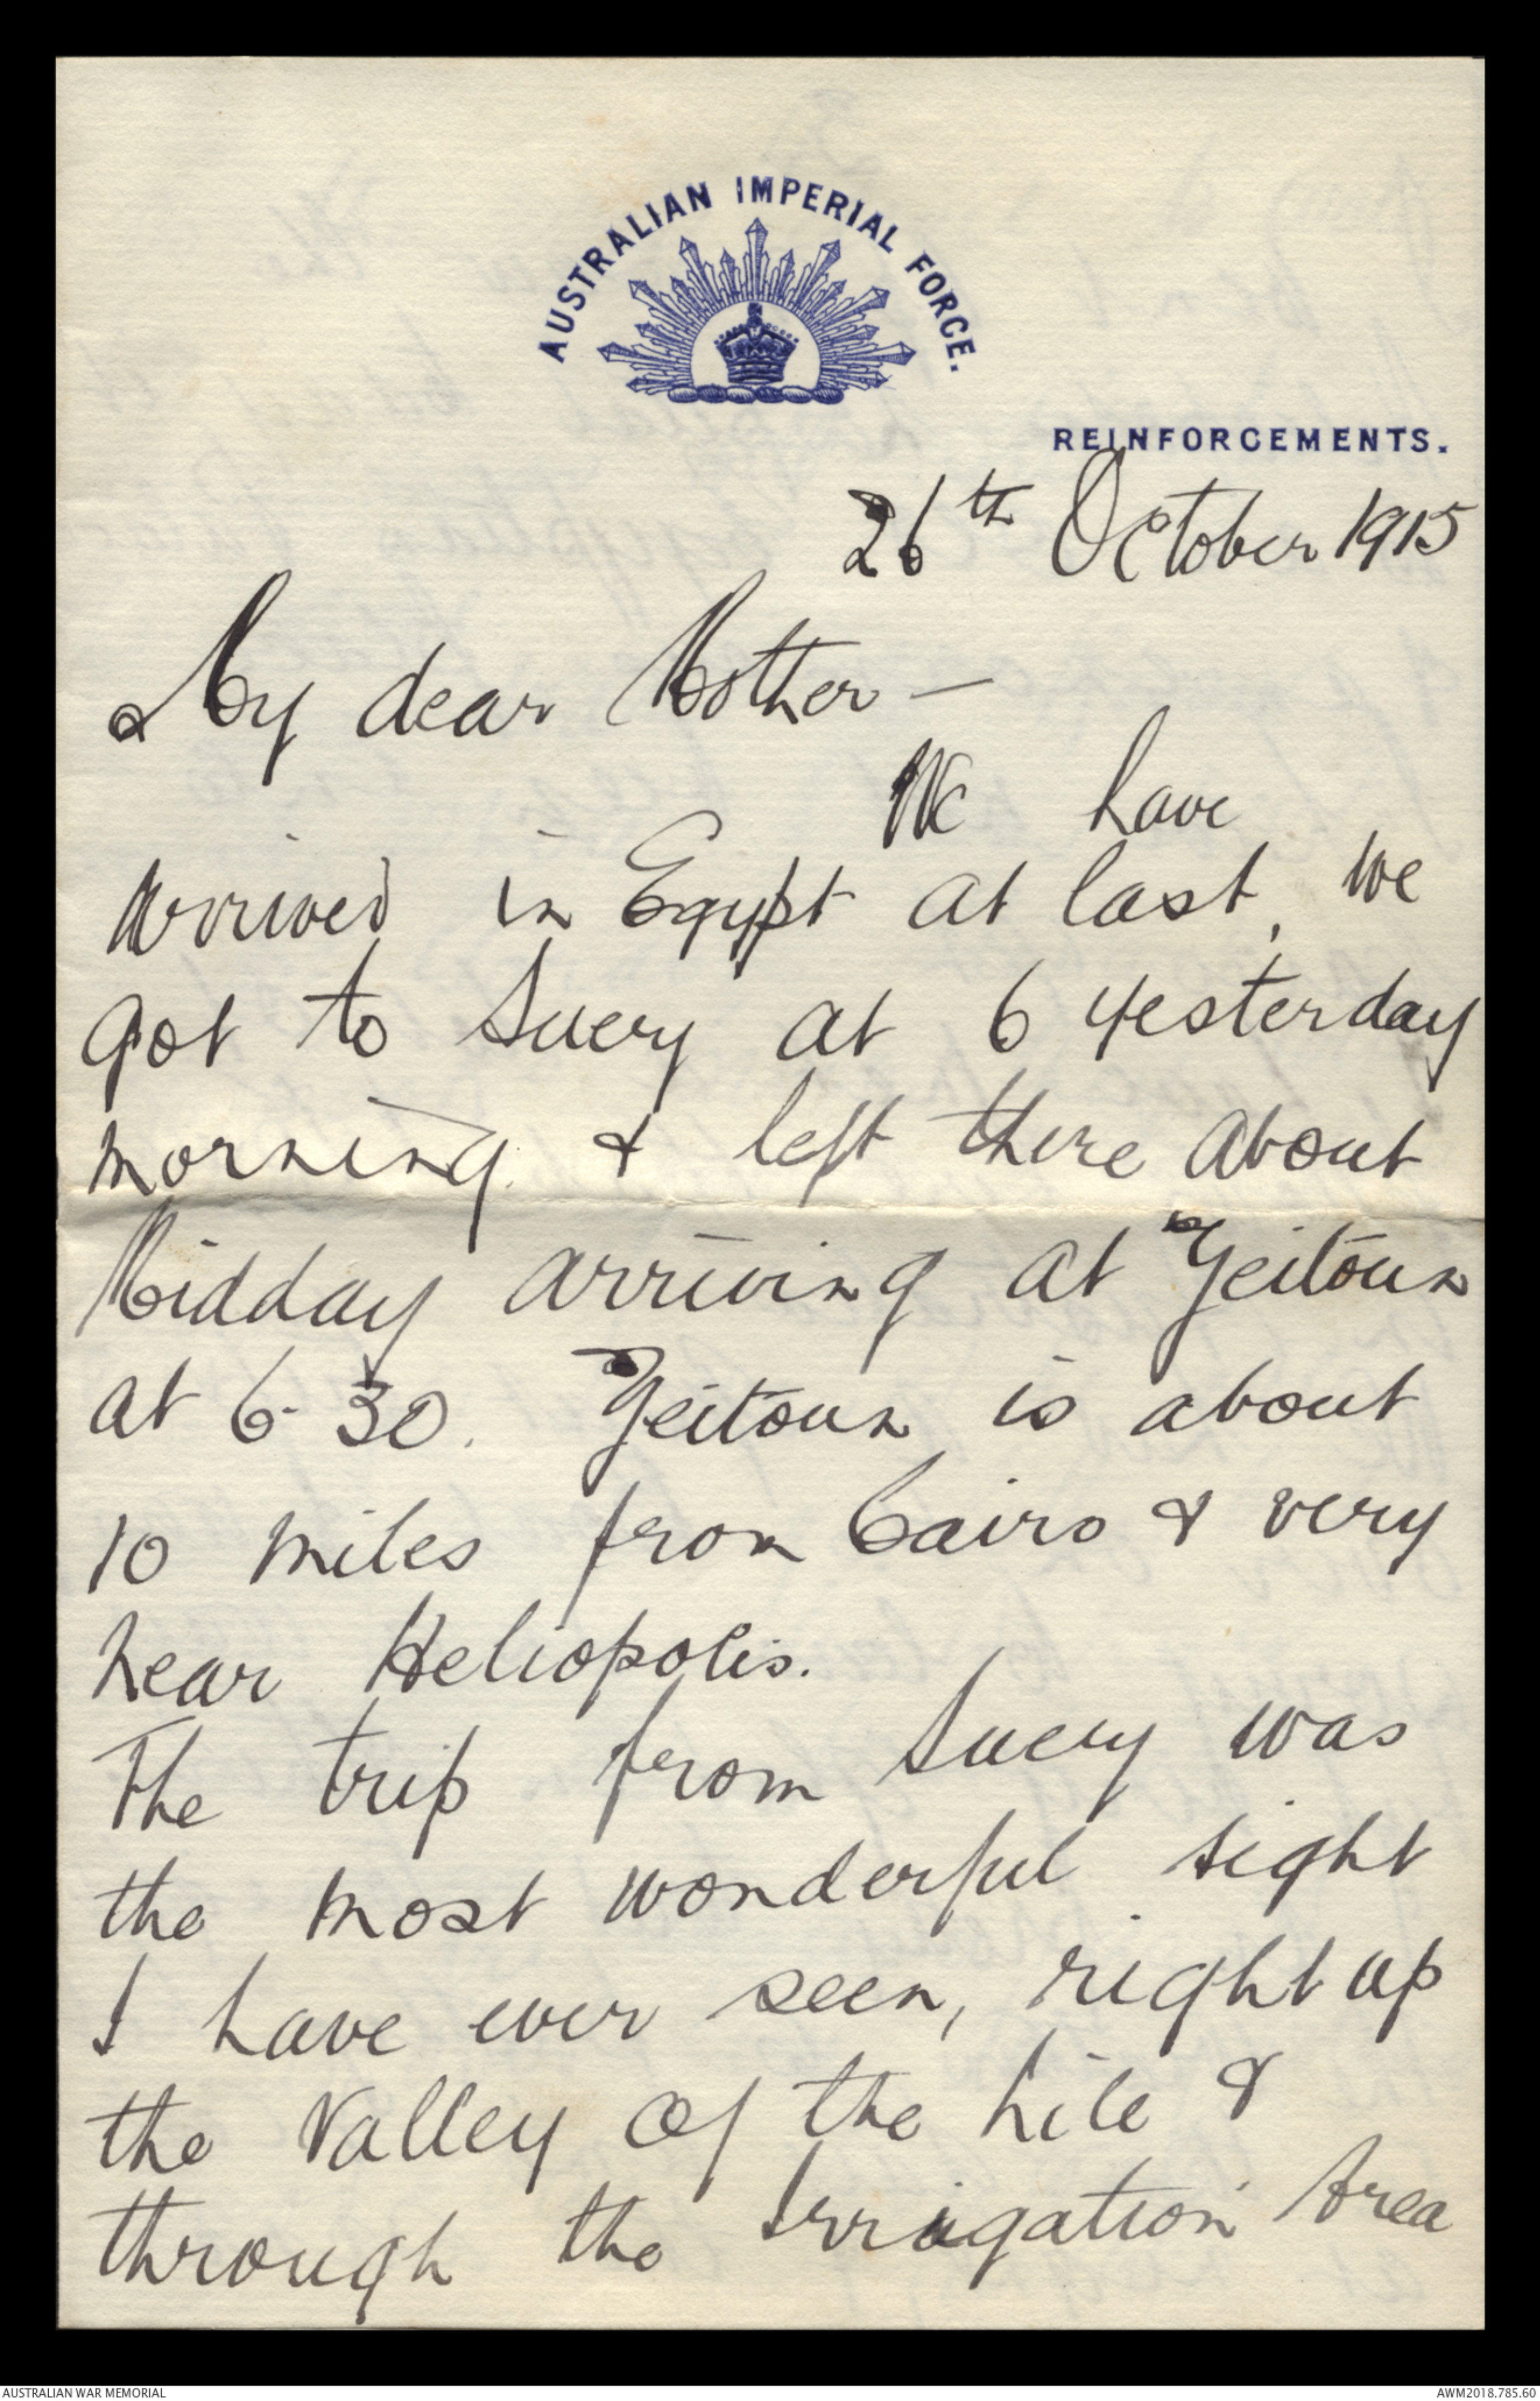 AUSTRALIAN IMPERIAL FORCE.
REINFORCEMENTS.
26th October 1915
My dear Mother —
We have
arrived in Egypt at last, we
got to Suez at 6 yesterday
morning. & left there about
Midday arriving at Zeitoun
at 6-30. Zeitoun is about
10 miles from Cairo & very
near Heliopolis.
The trip from Suez was
the most wonderful sight
I have ever seen, right up
the Valley of the Nile &
through the Irrigation Area
AUSTRALIAN WAR MEMORIAL
AWM2018.785.60